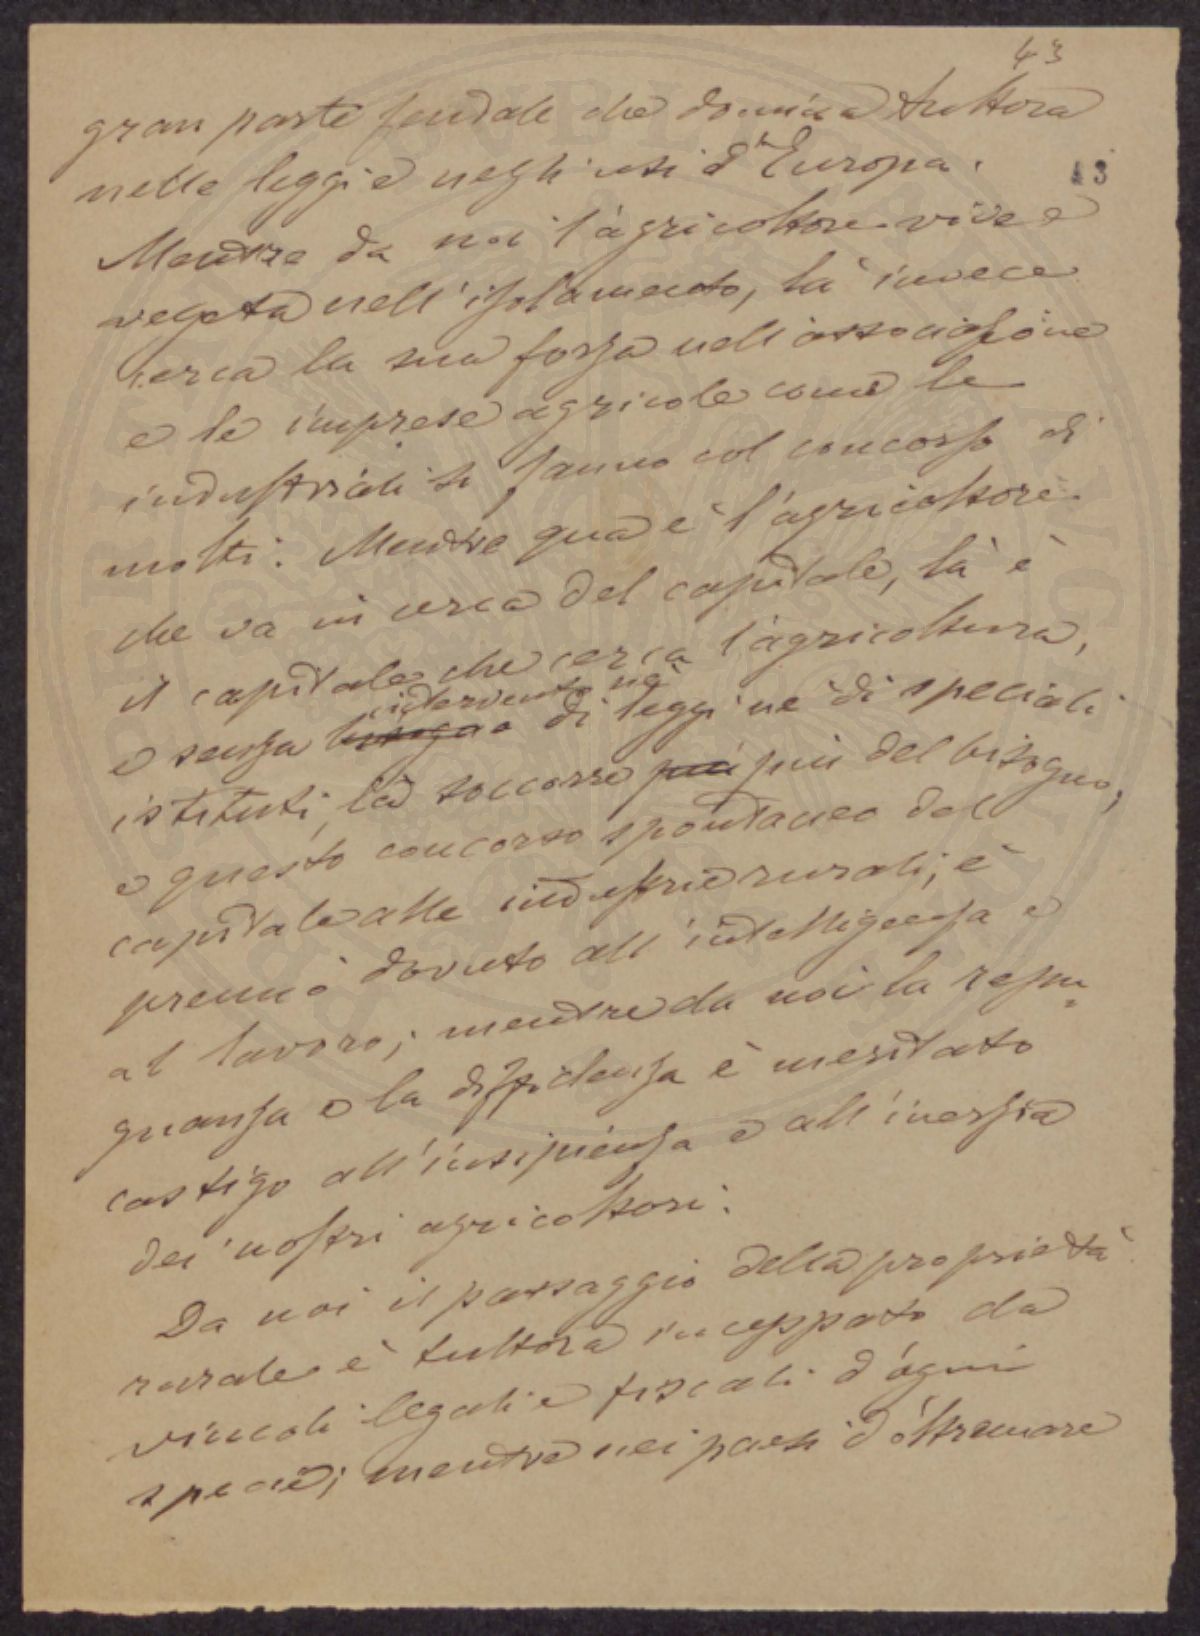 43
gran parte feudale che domina tuttora
nelle leggi e negli usi d'Europa.
13
Mentre da noi l'agricoltore vive e
vegeta nell'isolamento, là invece
cerca la sua forza nell'associazione
e le imprese agricole come le
industriali si fanno col concorso di
molti. Mentre qua è l'agricoltore
che va in cerca del capitale, là è
il capitale che cerca l'agricoltura,
intervento nè
e senza bisogno di leggi nè di speciali
istituti, la soccorre più più del bisogno,
e questo concorso spontaneo del
capitale alle industrie rurali, è
premio dovuto all'intelligenza e
al lavoro; mentre da noi la repu=
gnanza e la diffidenza è meritato
castigo all'insipienza e all'inerzia
dei nostri agricoltori.
Da noi il passaggio della proprietà
rurale è tuttora inceppato da
vincoli legali e fiscali d'ogni
specie; mentre nei paesi d'oltremare